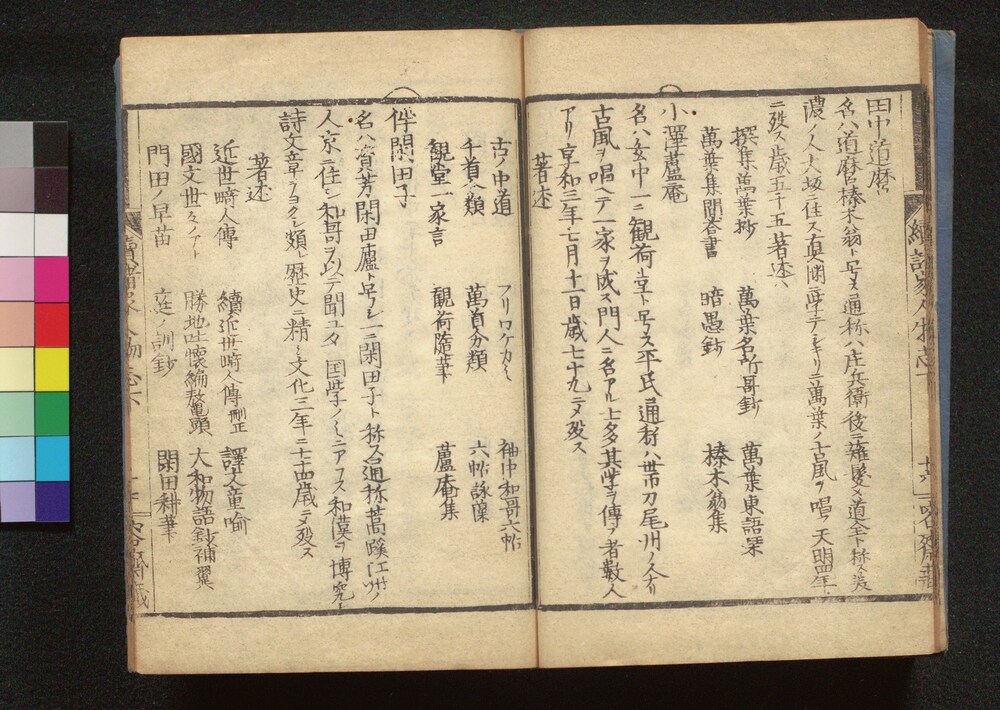 田中道麿
名ハ道麿榛木翁ト号ス通称ハ庄兵衞後ニ薙髪メ道全ト称ス美
濃ノ人大坂ニ住ス真渕ニ学テ専リニ萬葉ノ古風ヲ唱フ天明四年
ニ歿ス歳五十五著述ハ
撰集萬葉抄 萬葉名所哥鈔 萬葉東語栞
萬葉集問答書 暗愚鈔 榛木翁集
小澤蘆庵
名ハ玄中一ニ觀荷堂ト号ス平氏通称ハ帯刀尾州ノ人ナリ
古風ヲ唱ヘテ一家ヲ成ス門人ニ名アル士多其学ヲ傳フ者數人
アリ享和三年七月十一日歳七十九ニメ歿ス
著述
古ノ中道 フリワケカミ 袖中和哥六帖
千首分類 萬首分類 六帖詠藻
觀堂一家言 觀荷隨筆 蘆庵集
伴閑田子
名ハ資芳閑田廬ト号シ一ニ閑田子ト称ス通称蒿蹊江州ノ
人京ニ住シ和哥ヲ以テ聞ユタ 国学ノミニアラス和漢ヲ博究ト
詩文章ヲヨクシ頗ル歴史ニ精シ文化三年ニ七十四歳ニメ歿ス
著述
近世畸人傳 續近世畸人傳刪正 譯文童喩
國文世々ノアト 勝地吐懷編考鼇頭 大和物語鈔補翼
門田ノ早苗 庭ノ訓鈔 閑田耕筆